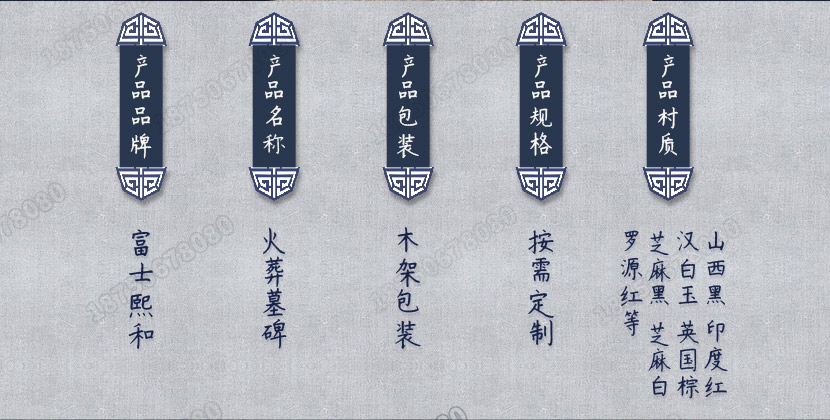 产品品牌
富士熙和
产品名称
火葬墓碑
产品包装
木架包装
产品规格
按需定制
产品村质
山西黑 印度红
汉白玉 英国棕
芝麻黑 芝麻白
罗源红等
18750678080